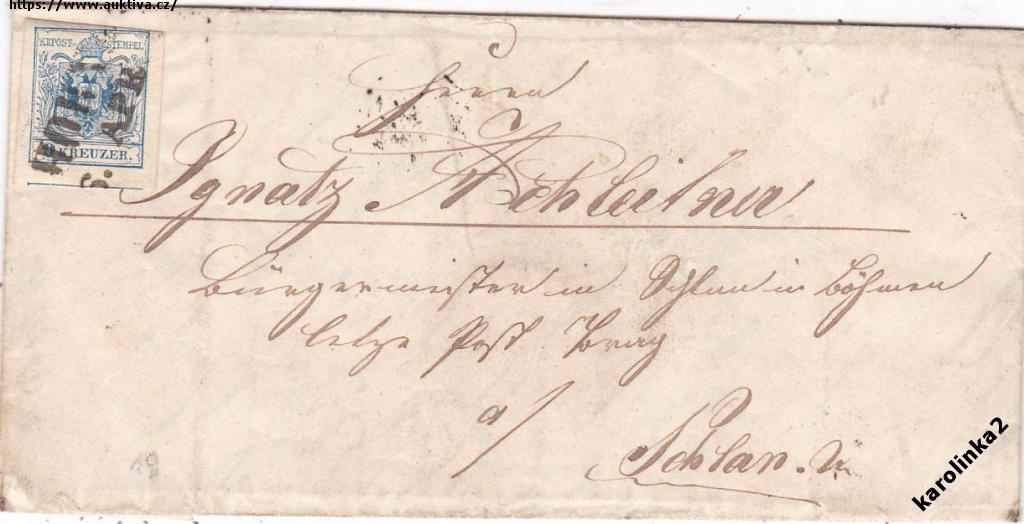 https://www.auktiva.cz/
KKPOST-STEMPEL
9 KREUZER.
Herrn
Ignatz Achleitner
Bürgermeister in Schlan in Böhmen
letze Post Prag
a/
Schlan.
19
karolinka2